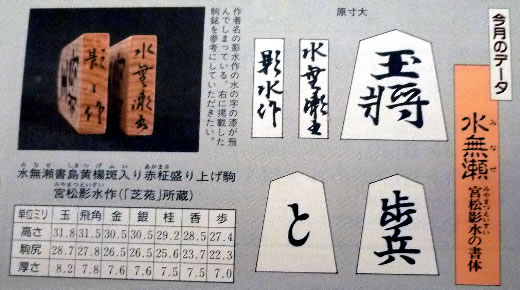 今月のデータ
水無瀬
みなせ
宮松影水の書体
みやまつえいすい
原寸大
玉将
歩兵
と
水無瀬書
影水作
作者名の影水作の水の字の漆が飛
んでしまっている。右に掲載した
駒銘を参考にしていただきたい。
水無瀬書島黄楊斑入り赤柾盛り上げ駒
みなせ しまつげふい あかまさ
宮松影水作(「芝苑」所蔵)
みやまつえいすい
単位ミリ 玉 飛角 金 銀 桂 香 歩
高さ 31.8 31.5 30.5 30.5 29.2 28.5 27.4
駒尻 28.7 27.8 26.5 26.5 25.6 23.7 22.3
厚さ 8.2 7.8 7.6 7.6 7.5 7.5 7.0